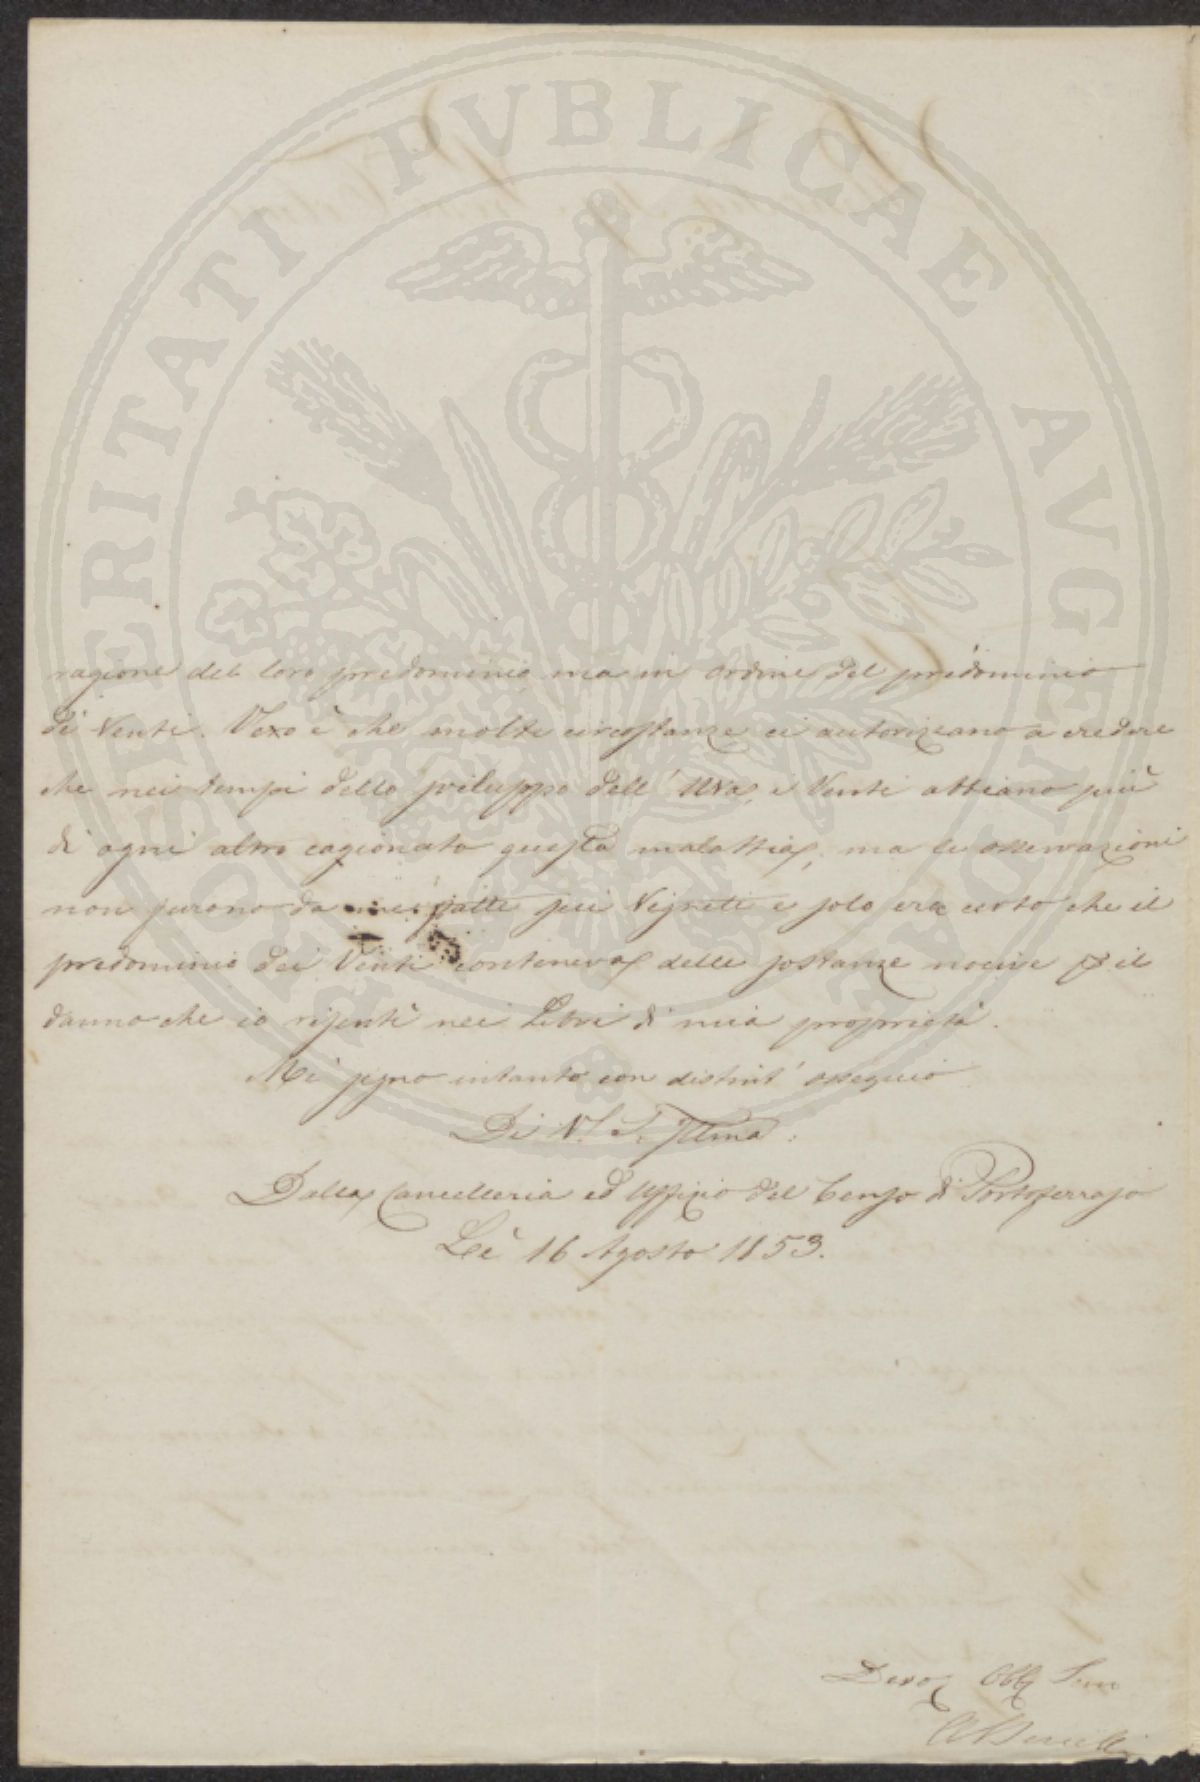 PROSPERITATI PVBLICAE AVGENDAE
ragione del loro predominio ma in ordine del predominio
di Venti. Vero è che molte circostanze ci autorizzano a credere
che nei tempi dello sviluppo dell' Uva, i Venti abbiano più
di ogni altro cagionato questa malattia, ma le osservazioni
non furono da me fatte sui Vigneti e solo era certo che il
predominio dei Venti conteneva delle sostanze nocive p il
danno che io risentì nei Libri di mia proprietà.
Mi segno intanto con distint' ossequio
Di V. S. Illma:
Dalla Cancelleria ed Uffizio del Censo di Portoferrajo
Lì 16 Agosto 1853.
Devo Obb Serv